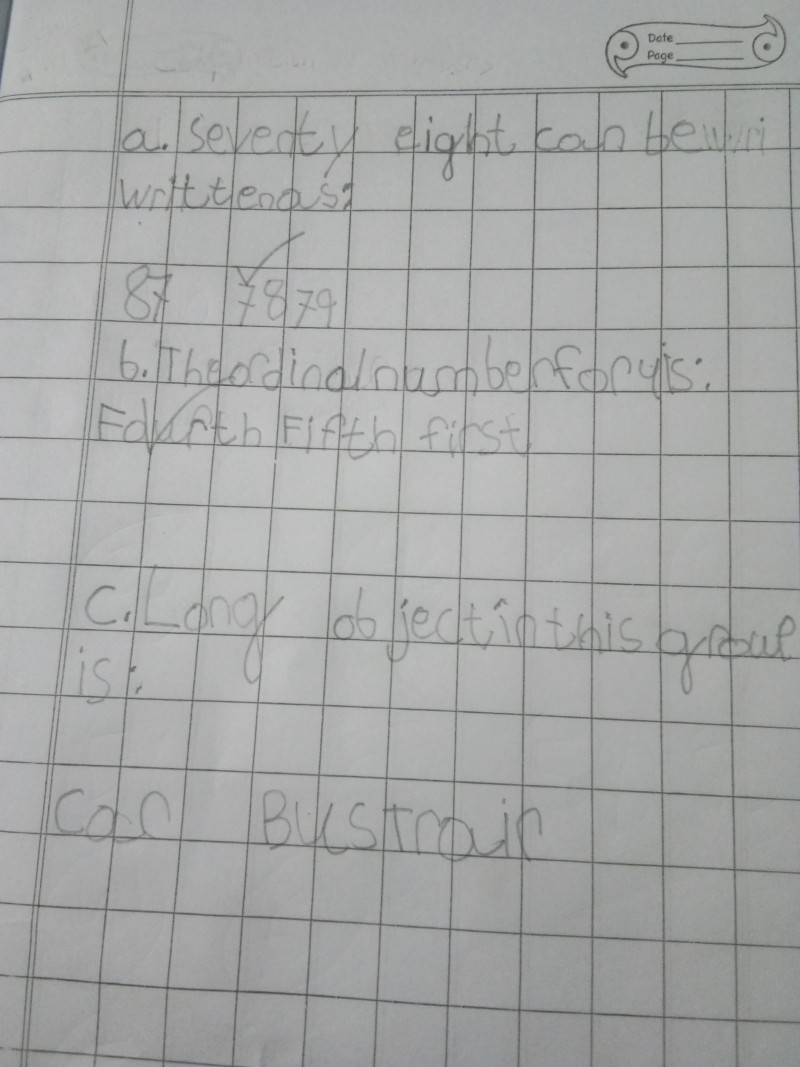 Date
Page
a. Seventy eight can be wri
written as:
87 78 79
b. The ordinal number for 4 is:
Fourth Fifth first
c. Long object in this group
is:
Car Bus Train